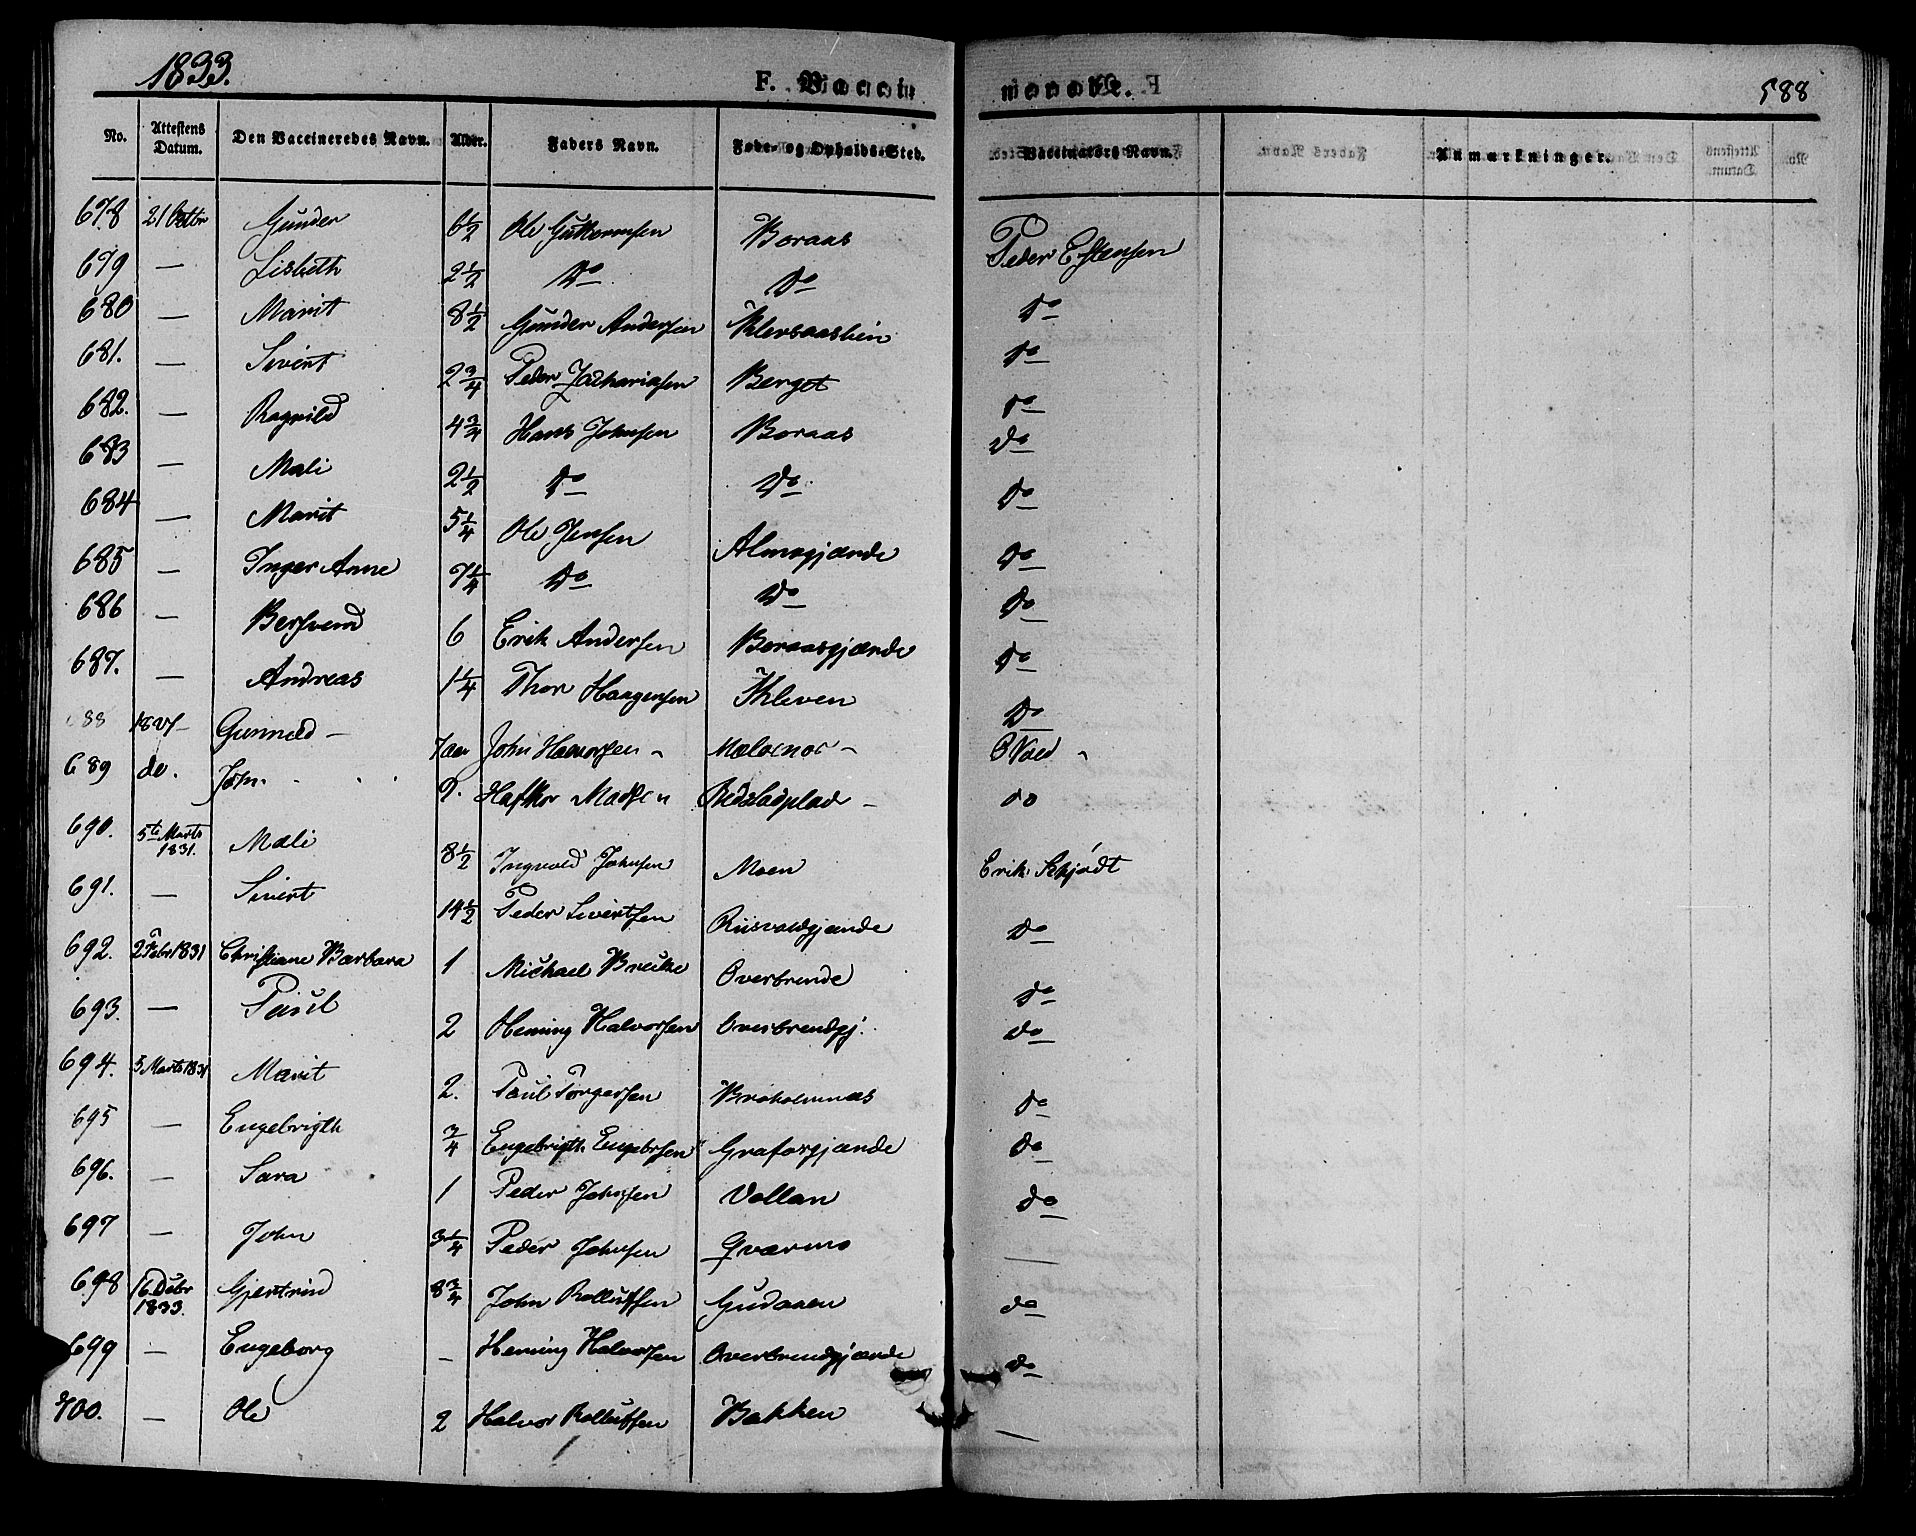 1833.
F. Vaccinerede.
588
No. | Attestens Datum. | Den Vaccineredes Navn. | Alder. | Faders Navn. | Føde- og Opholds-Sted. | Vaccinators Navn. | Anmærkninger.
678 | 21 Octbr | Gunder | 6½ | Ole Guttormsen | Boraas | Peder Estensen
679 | — | Lisbeth | 2½ | Do | Do | Do
680 | — | Marit | 8½ | Gunder Andersen | Do
681. | — | Sivert | 2¾ | Peder Zachariasen | Berget | Do
682. | — | Ragnild | 4¾ | Hans Johnsen | Boraas | Do
683 | — | Mali | 2½ | Do | Do | Do
684 | — | Marit | 5¼ | Ole Jensen | Almogjærde | Do
685 | — | Inger Anne | 7¼ | Do | Do | Do
686 | — | Bersvend | 6 | Erik Andersen | Boraasgjærde | Do
687. | — | Andreas | 1¼ | Thor Haagensen | Kleven | Do
688 | Gunnild | 7 aar | John Halvorsen | do
689 | do. | John | 9. | Hafthor Madsen | do
690. | 5te Marts 1831. | Mali | 8½ | Ingvald Johnsen | Moen | Erik Schjödt
691. | — | Sivert | 14½ | Peder Sivertsen | Riisvoldgjærde | Do
692. | 2 Febr 1831 | Christiane Barbara | 1 | Michael | Overbrende | Do
693. | — | Paul | 2 | Heming Halvorsen | Overbrendgj. | Do
694. | 5 Marts 1831 | Marit | 2. | Paul Torgersen | Broholmnæs | Do
695 | — | Engebrigth | ¾ | Engebrigth Engebrsen | Graforgjærde | Do
696. | — | Sara | 1 | Peder Johnsen | Vollan | Do
697 | — | John | 3¼ | Peder Johnsen | Qværnmo | —
698 | 16 Debr 1833. | Gjertrud | 8¾ | John Rolluffsen | Gudaaen | Do
699 | — | Engeborg | — | Heming Halvorsen | Overbrendgjærde | Do
700. | — | Ole | 2 | Halvor Rolluffsen | Bakken | —